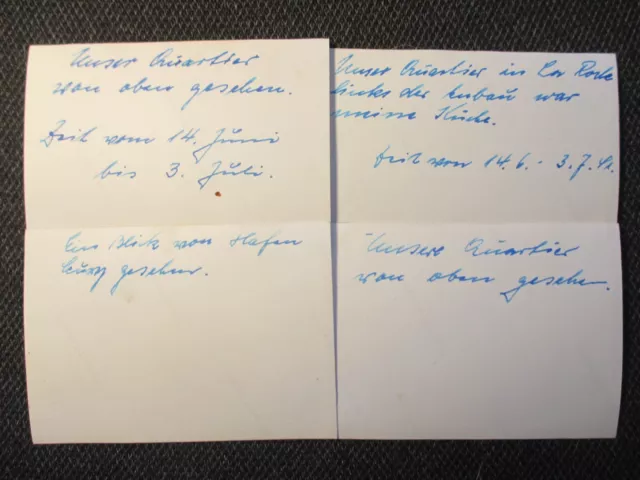 Unser Quartier
von oben gesehen.
Zeit vom 14. Juni
bis 3. Juli.
Ein Blik von Hafen
gesehen.
Unser Quartier in La Roch
links der anbau war
meine Küche.
Zeit von 14.6. - 3.7.41.
Unsere Quartier
von oben gesehen.